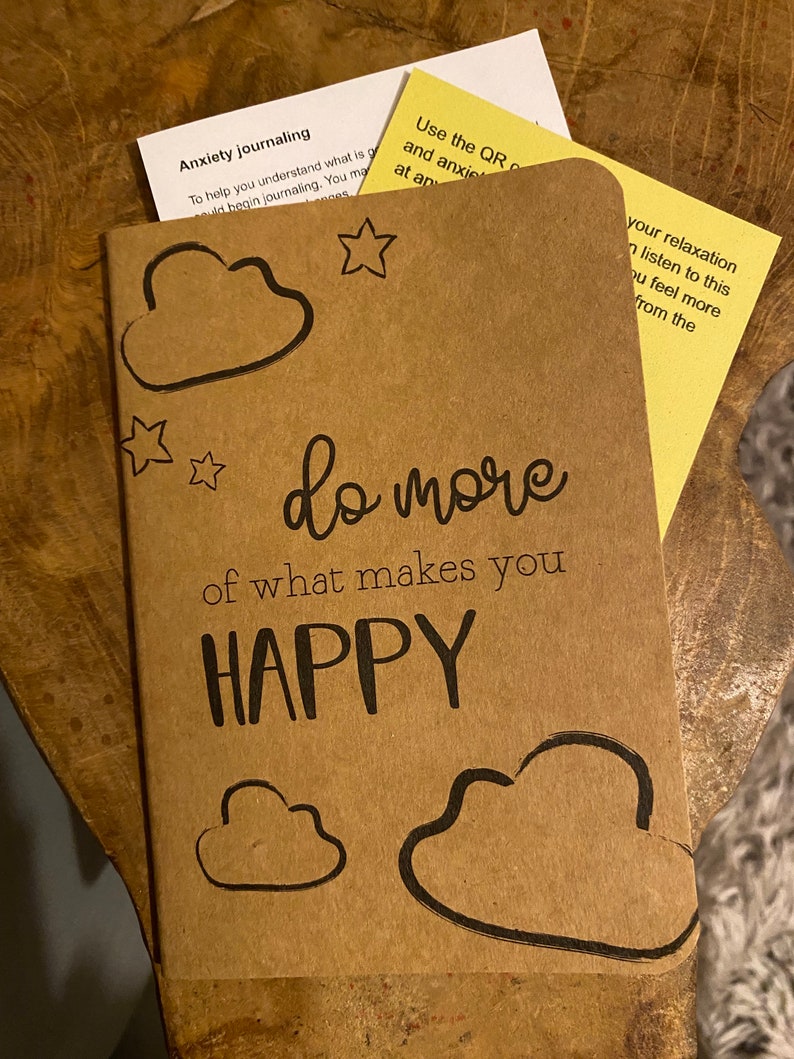 Anxiety journaling
To help you understand what is
could begin journaling. You
Use the QR
and
at
your relaxation
listen to this
you feel more
from the
do more
of what makes you
HAPPY